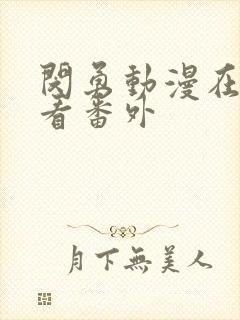 閔勇動漫在
看番外
月下無美人